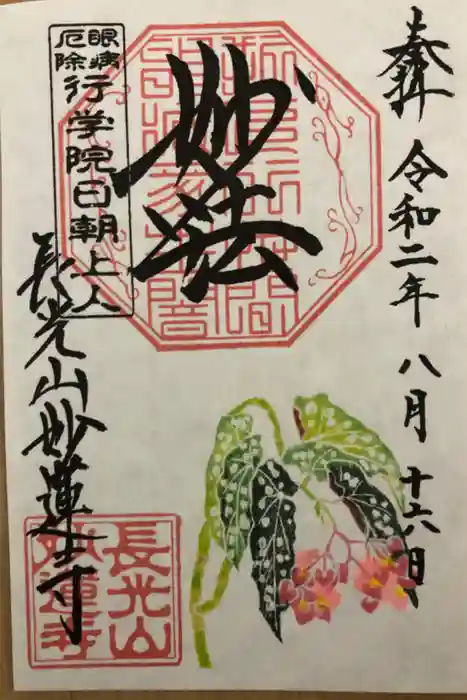 奉拝
令和二年 八月 十六日
妙法
眼病
厄除
行学院日朝上人
長光山妙蓮寺
長光山
妙蓮寺